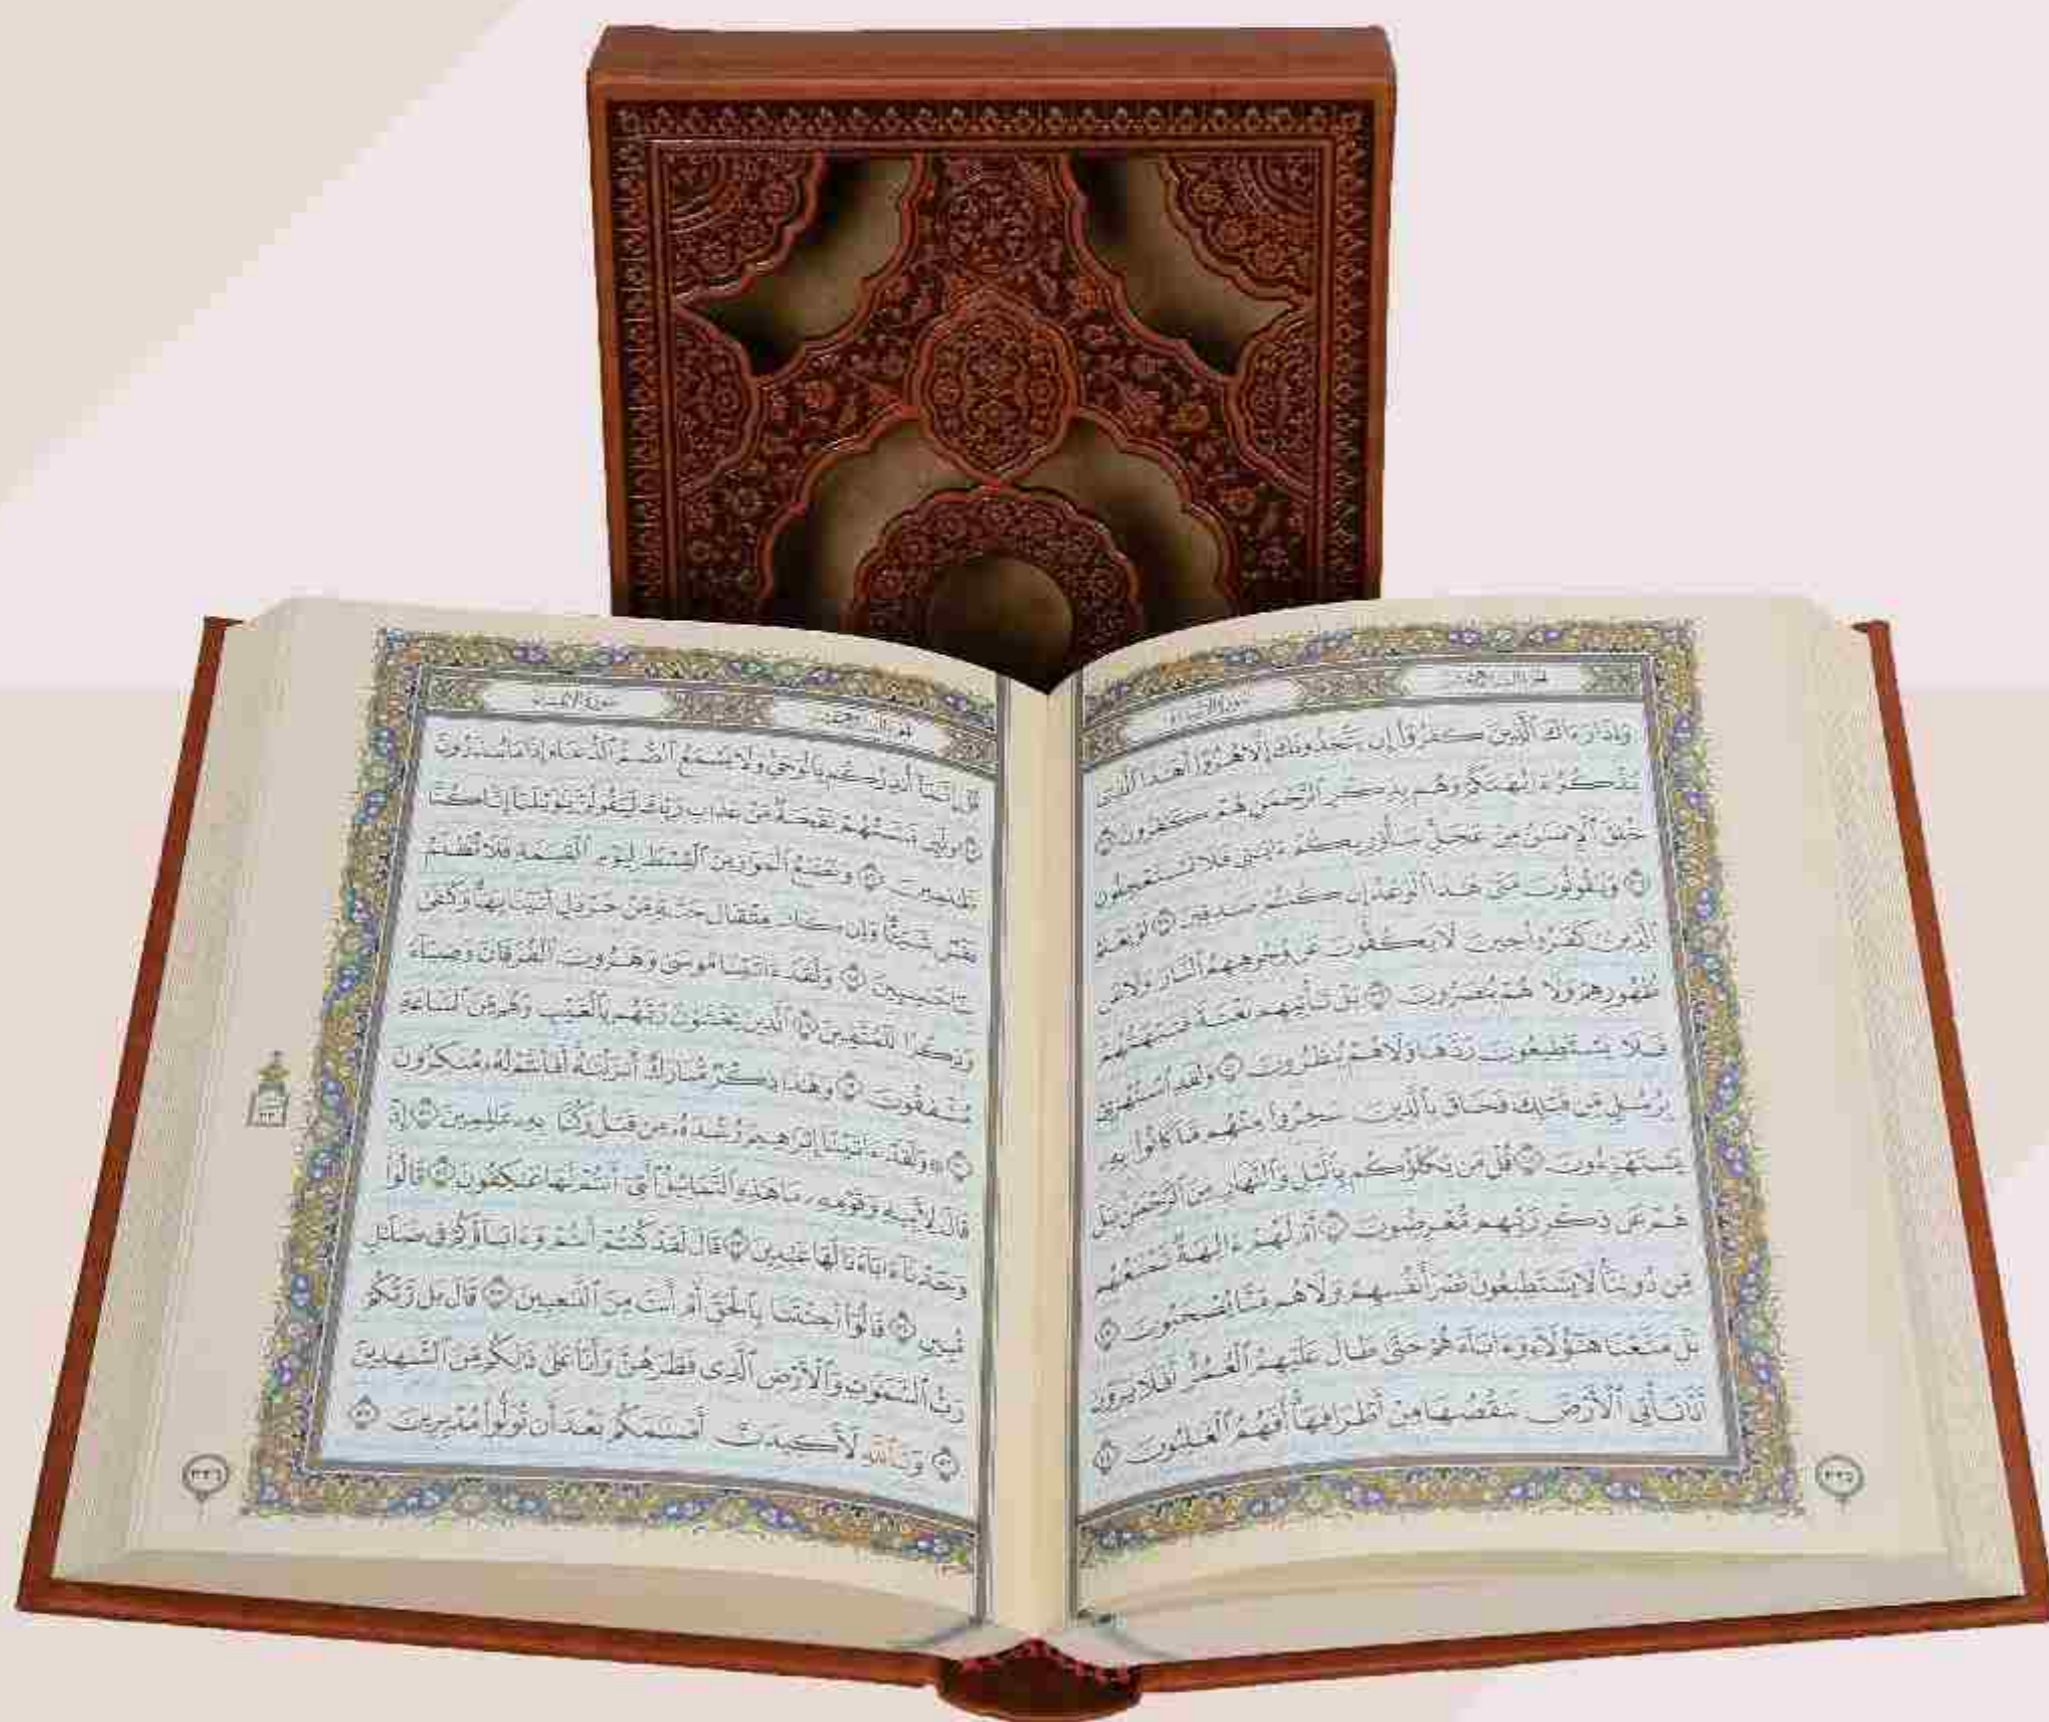 سُورَةُ الأَنبِيَاءِ
وَإِذَا رَءَاكَ ٱلَّذِينَ كَفَرُوٓا۟ إِن يَتَّخِذُونَكَ إِلَّا هُزُوًا أَهَٰذَا ٱلَّذِى
يَذْكُرُ ءَالِهَتَكُمْ وَهُم بِذِكْرِ ٱلرَّحْمَٰنِ هُمْ كَٰفِرُونَ ٣٦
خُلِقَ ٱلْإِنسَٰنُ مِنْ عَجَلٍ سَأُو۟رِيكُمْ ءَايَٰتِى فَلَا تَسْتَعْجِلُونِ
٣٧ وَيَقُولُونَ مَتَىٰ هَٰذَا ٱلْوَعْدُ إِن كُنتُمْ صَٰدِقِينَ ٣٨ لَوْ يَعْلَمُ
ٱلَّذِينَ كَفَرُوا۟ حِينَ لَا يَكُفُّونَ عَن وُجُوهِهِمُ ٱلنَّارَ وَلَا عَن
ظُهُورِهِمْ وَلَا هُمْ يُنصَرُونَ ٣٩ بَلْ تَأْتِيهِم بَغْتَةً فَتَبْهَتُهُمْ
فَلَا يَسْتَطِيعُونَ رَدَّهَا وَلَا هُمْ يُنظَرُونَ ٤٠ وَلَقَدِ ٱسْتُهْزِئَ
بِرُسُلٍ مِّن قَبْلِكَ فَحَاقَ بِٱلَّذِينَ سَخِرُوا۟ مِنْهُم مَّا كَانُوا۟ بِهِۦ
يَسْتَهْزِءُونَ ٤١ قُلْ مَن يَكْلَؤُكُم بِٱلَّيْلِ وَٱلنَّهَارِ مِنَ ٱلرَّحْمَٰنِ بَلْ
هُمْ عَن ذِكْرِ رَبِّهِم مُّعْرِضُونَ ٤٢ أَمْ لَهُمْ ءَالِهَةٌ تَمْنَعُهُم
مِّن دُونِنَا لَا يَسْتَطِيعُونَ نَصْرَ أَنفُسِهِمْ وَلَا هُم مِّنَّا يُصْحَبُونَ ٤٣
بَلْ مَتَّعْنَا هَٰٓؤُلَآءِ وَءَابَآءَهُمْ حَتَّىٰ طَالَ عَلَيْهِمُ ٱلْعُمُرُ أَفَلَا يَرَوْنَ
أَنَّا نَأْتِى ٱلْأَرْضَ نَنقُصُهَا مِنْ أَطْرَافِهَآ أَفَهُمُ ٱلْغَٰلِبُونَ ٤٤
٣٢٥
سُورَةُ الأَنبِيَاءِ
قُلْ إِنَّمَآ أُنذِرُكُم بِٱلْوَحْىِ وَلَا يَسْمَعُ ٱلصُّمُّ ٱلدُّعَآءَ إِذَا مَا يُنذَرُونَ
٤٥ وَلَئِن مَّسَّتْهُمْ نَفْحَةٌ مِّنْ عَذَابِ رَبِّكَ لَيَقُولُنَّ يَٰوَيْلَنَآ إِنَّا كُنَّا
ظَٰلِمِينَ ٤٦ وَنَضَعُ ٱلْمَوَٰزِينَ ٱلْقِسْطَ لِيَوْمِ ٱلْقِيَٰمَةِ فَلَا تُظْلَمُ
نَفْسٌ شَيْـًٔا وَإِن كَانَ مِثْقَالَ حَبَّةٍ مِّنْ خَرْدَلٍ أَتَيْنَا بِهَا وَكَفَىٰ
بِنَا حَٰسِبِينَ ٤٧ وَلَقَدْ ءَاتَيْنَا مُوسَىٰ وَهَٰرُونَ ٱلْفُرْقَانَ وَضِيَآءً
وَذِكْرًا لِّلْمُتَّقِينَ ٤٨ ٱلَّذِينَ يَخْشَوْنَ رَبَّهُم بِٱلْغَيْبِ وَهُم مِّنَ ٱلسَّاعَةِ
مُشْفِقُونَ ٤٩ وَهَٰذَا ذِكْرٌ مُّبَارَكٌ أَنزَلْنَٰهُ أَفَأَنتُمْ لَهُۥ مُنكِرُونَ
٥٠ ۞ وَلَقَدْ ءَاتَيْنَآ إِبْرَٰهِيمَ رُشْدَهُۥ مِن قَبْلُ وَكُنَّا بِهِۦ عَٰلِمِينَ ٥١ إِذْ
قَالَ لِأَبِيهِ وَقَوْمِهِۦ مَا هَٰذِهِ ٱلتَّمَاثِيلُ ٱلَّتِىٓ أَنتُمْ لَهَا عَٰكِفُونَ ٥٢ قَالُوا۟
وَجَدْنَآ ءَابَآءَنَا لَهَا عَٰبِدِينَ ٥٣ قَالَ لَقَدْ كُنتُمْ أَنتُمْ وَءَابَآؤُكُمْ فِى ضَلَٰلٍ
مُّبِينٍ ٥٤ قَالُوٓا۟ أَجِئْتَنَا بِٱلْحَقِّ أَمْ أَنتَ مِنَ ٱللَّٰعِبِينَ ٥٥ قَالَ بَل رَّبُّكُمْ
رَبُّ ٱلسَّمَٰوَٰتِ وَٱلْأَرْضِ ٱلَّذِى فَطَرَهُنَّ وَأَنَا۠ عَلَىٰ ذَٰلِكُم مِّنَ ٱلشَّٰهِدِينَ
٥٦ وَتَٱللَّهِ لَأَكِيدَنَّ أَصْنَٰمَكُم بَعْدَ أَن تُوَلُّوا۟ مُدْبِرِينَ ٥٧
٣٢٦